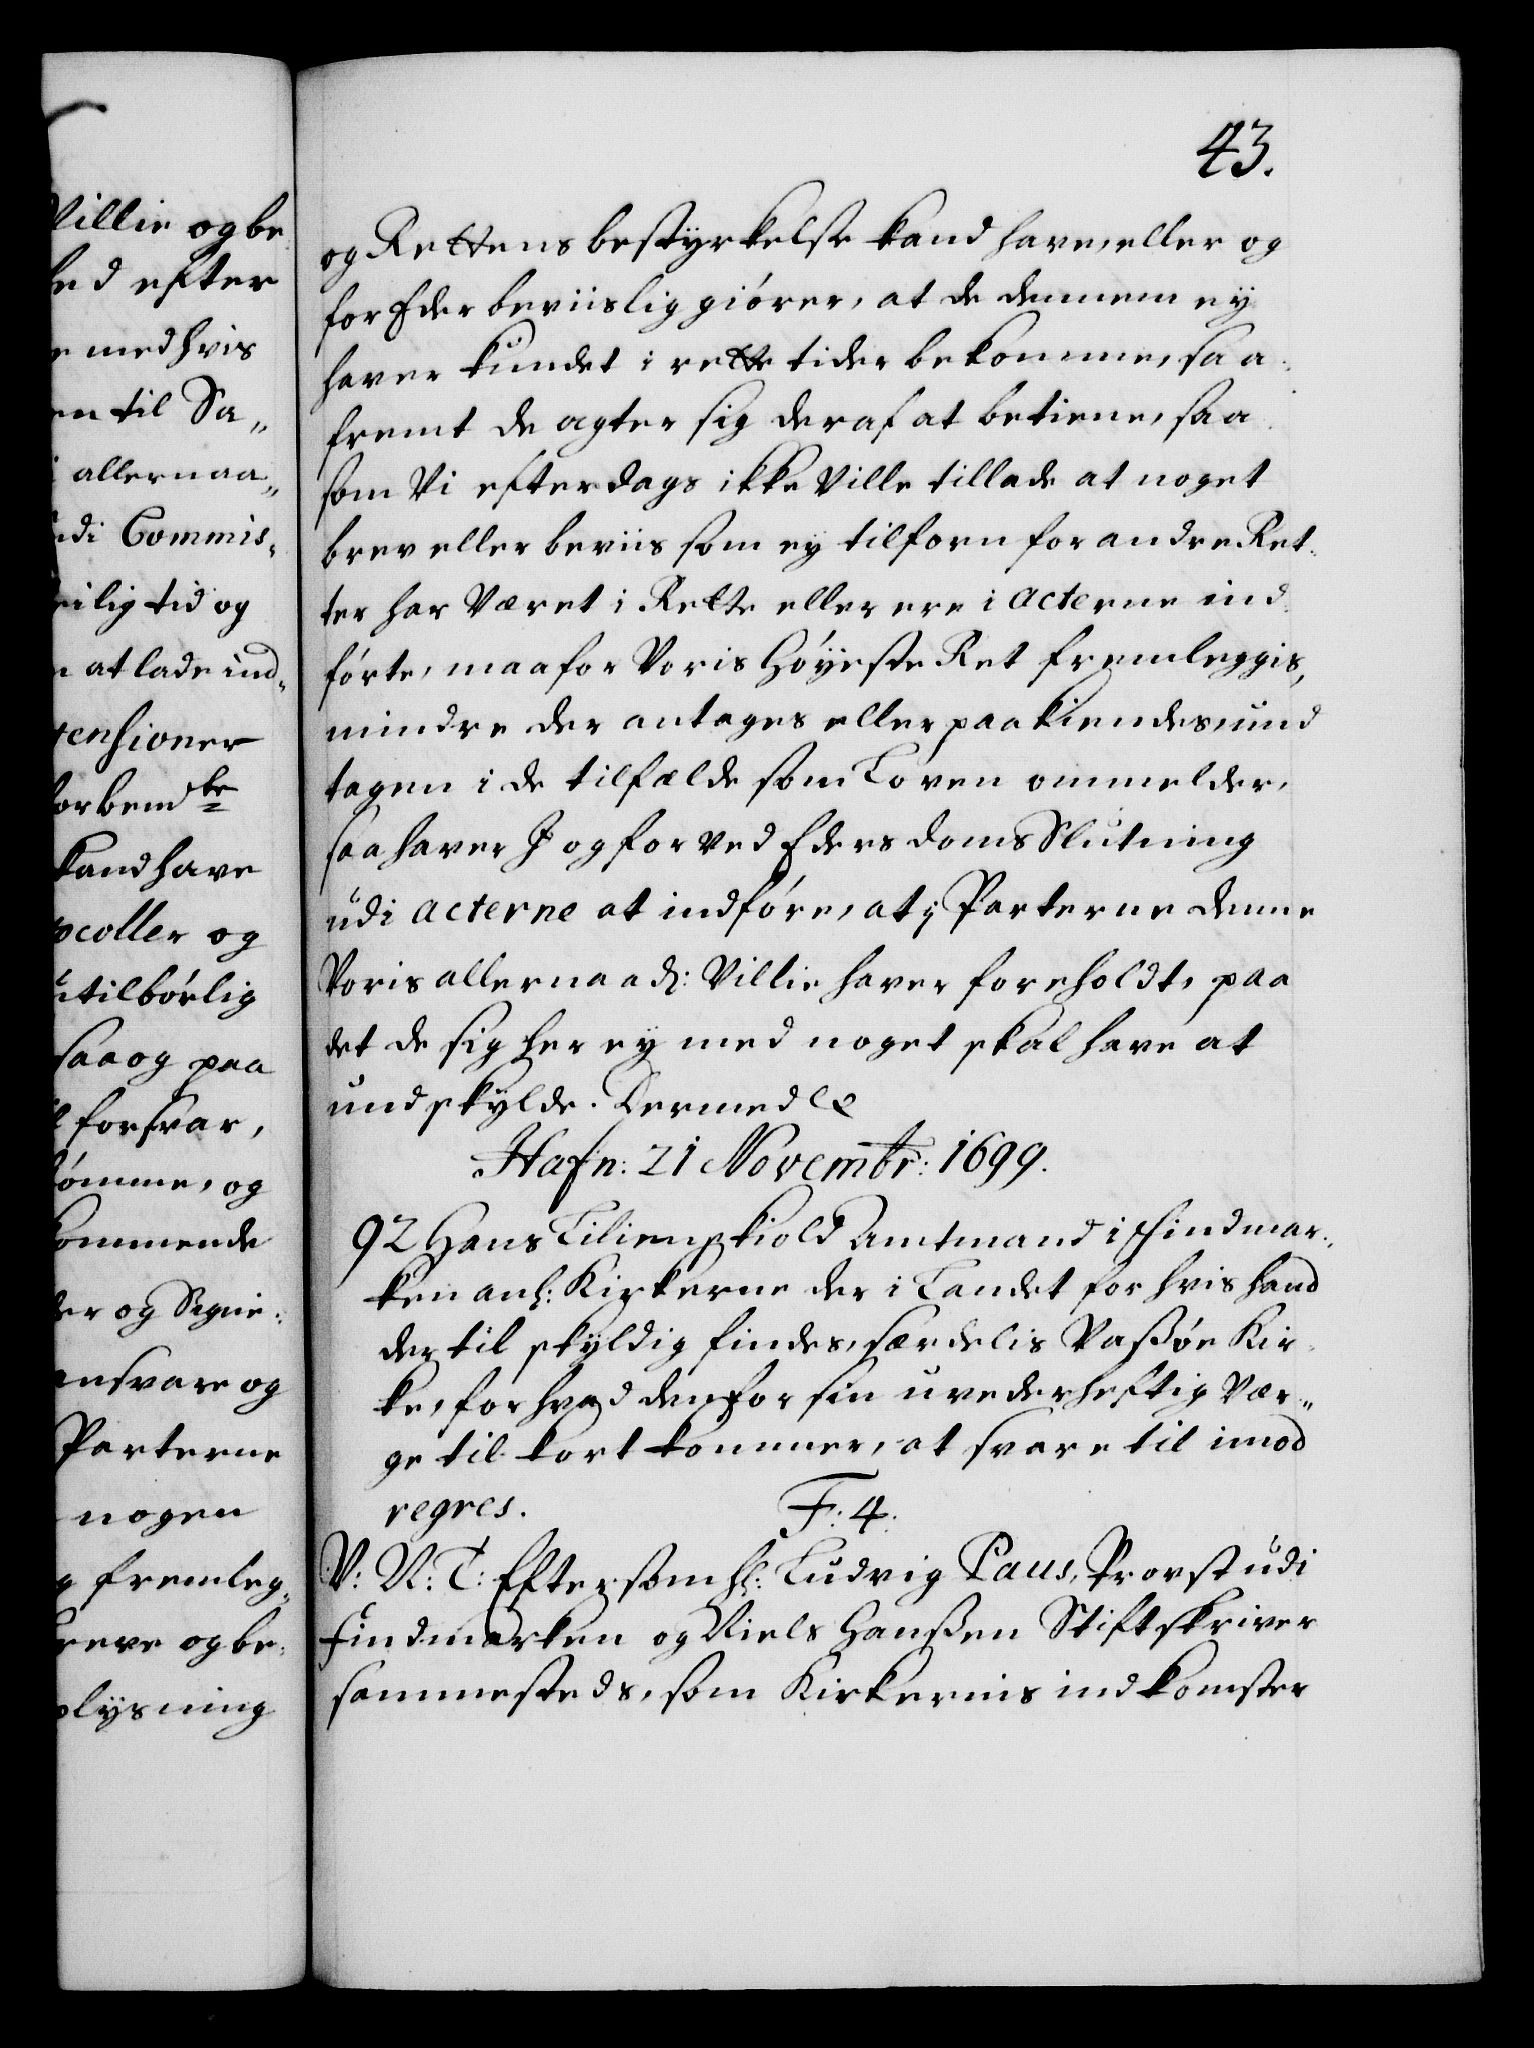 43.
Villie og be
hed efter
e med hvis
en til Sa„
i allernaa„
udi Commis„
leilig tid og
n at lade ind„
tensioner
forbemte
kand have
tocoller og
utilbørlig
saa og paa
l forsvar,
dømme, og
kommende
der og Regie„
ansvare og
Parterne
nogen
g fremleg„
breve og be„
plysning
og Rettens bestyrkelse kand have, eller og
for Eder beviislig giører, at de dennem ey
haver kundet i rette tider bekomme, saa„
fremt de agter sig deraf at betiene, saa
som Vi efterdags ikke Ville tillade at noget
brev eller beviis som ey tilforn for andre Ret„
ter har Været i Rette eller ere i Acterne ind„
førte, maa for Voris Høyeste Ret fremleggis,
mindre der antages eller paakiendes, und
tagen i de tilfælde som Loven ommelder,
saa haver I og forved Eders doms Slutning
udi Acterne at indføre, at I Parterne denne
Voris allernaad: Villie haver foreholdt, paa
det de sig her ey med noget skal have at
undskylde. Dermed &c
Hafn: 21 Novembr: 1699.
92 Hans Lilienskiold Amtmand i Findmar„
ken anl: Kirkerne der i Landet for hvis hand
dertil skyldig findes, særdelis Vaßøe Kir„
ke, for hvad den for sin uvederheftig Vær„
ge til kort kommer, at svare til imod
regres. F: 4:
V: N: T: Eftersom hl: Ludvig Paus, Provst udi
Findmarken og Niels Hanßen Stiftskriver
sammesteds, som Kirkernis indkomster